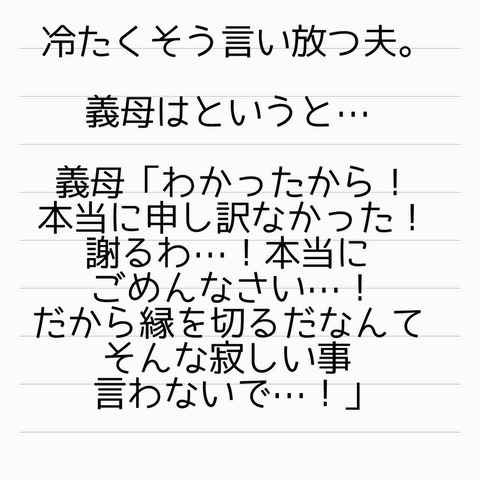 冷たくそう言い放つ夫。
義母はというと…
義母「わかったから！
本当に申し訳なかった！
謝るわ…！本当に
ごめんなさい…！
だから縁を切るだなんて
そんな寂しい事
言わないで…！」